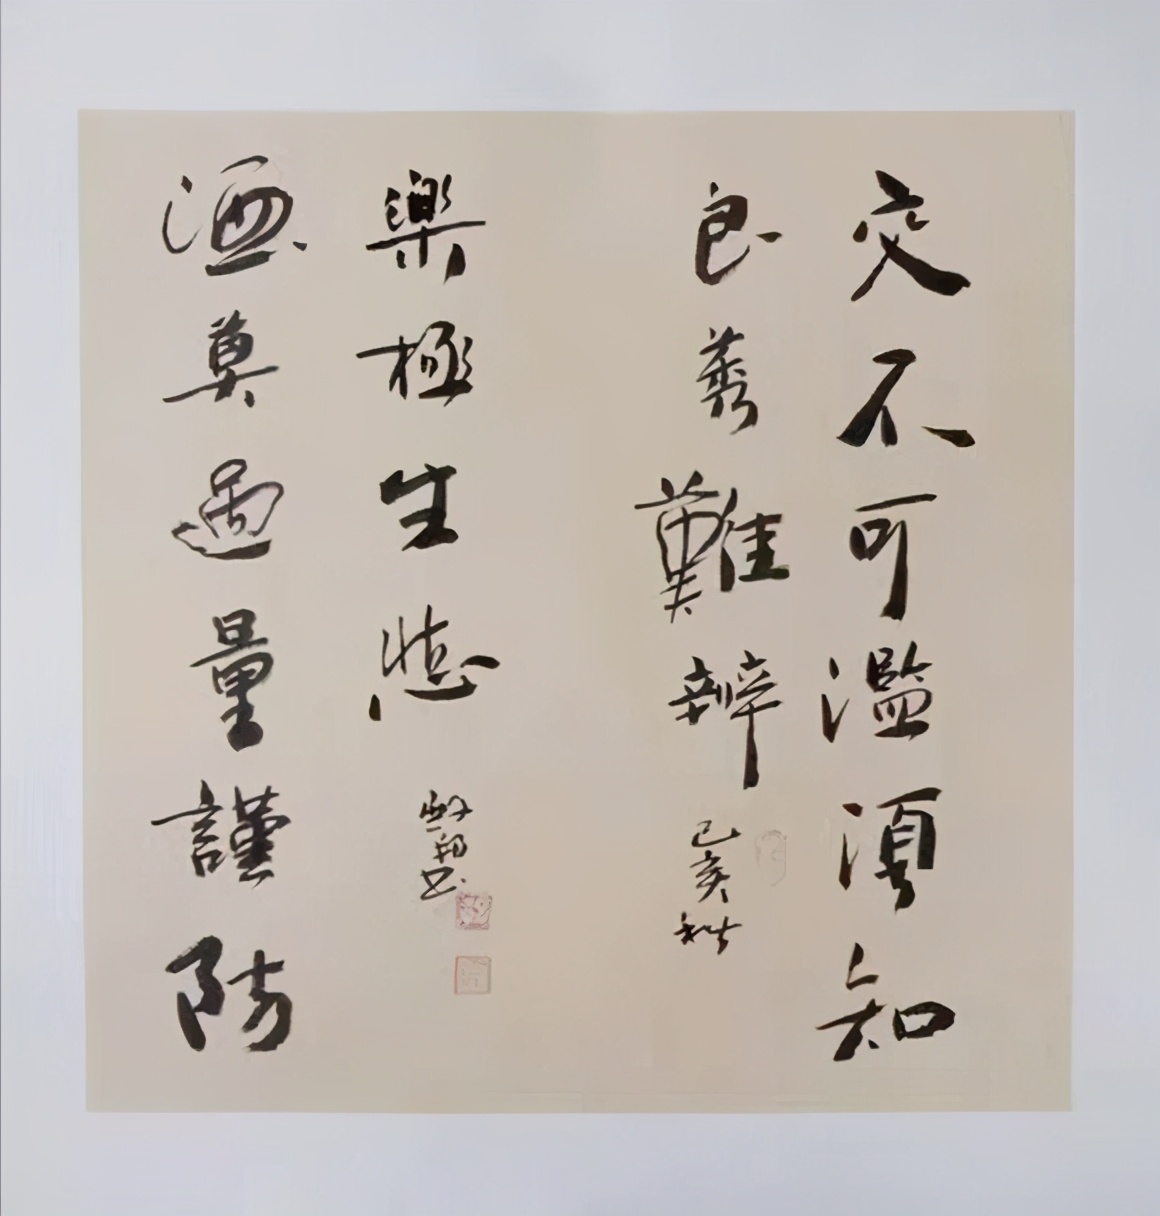 交不可濫須知
良莠難辨
己亥秋
酒莫過量謹防
樂極生悲
書